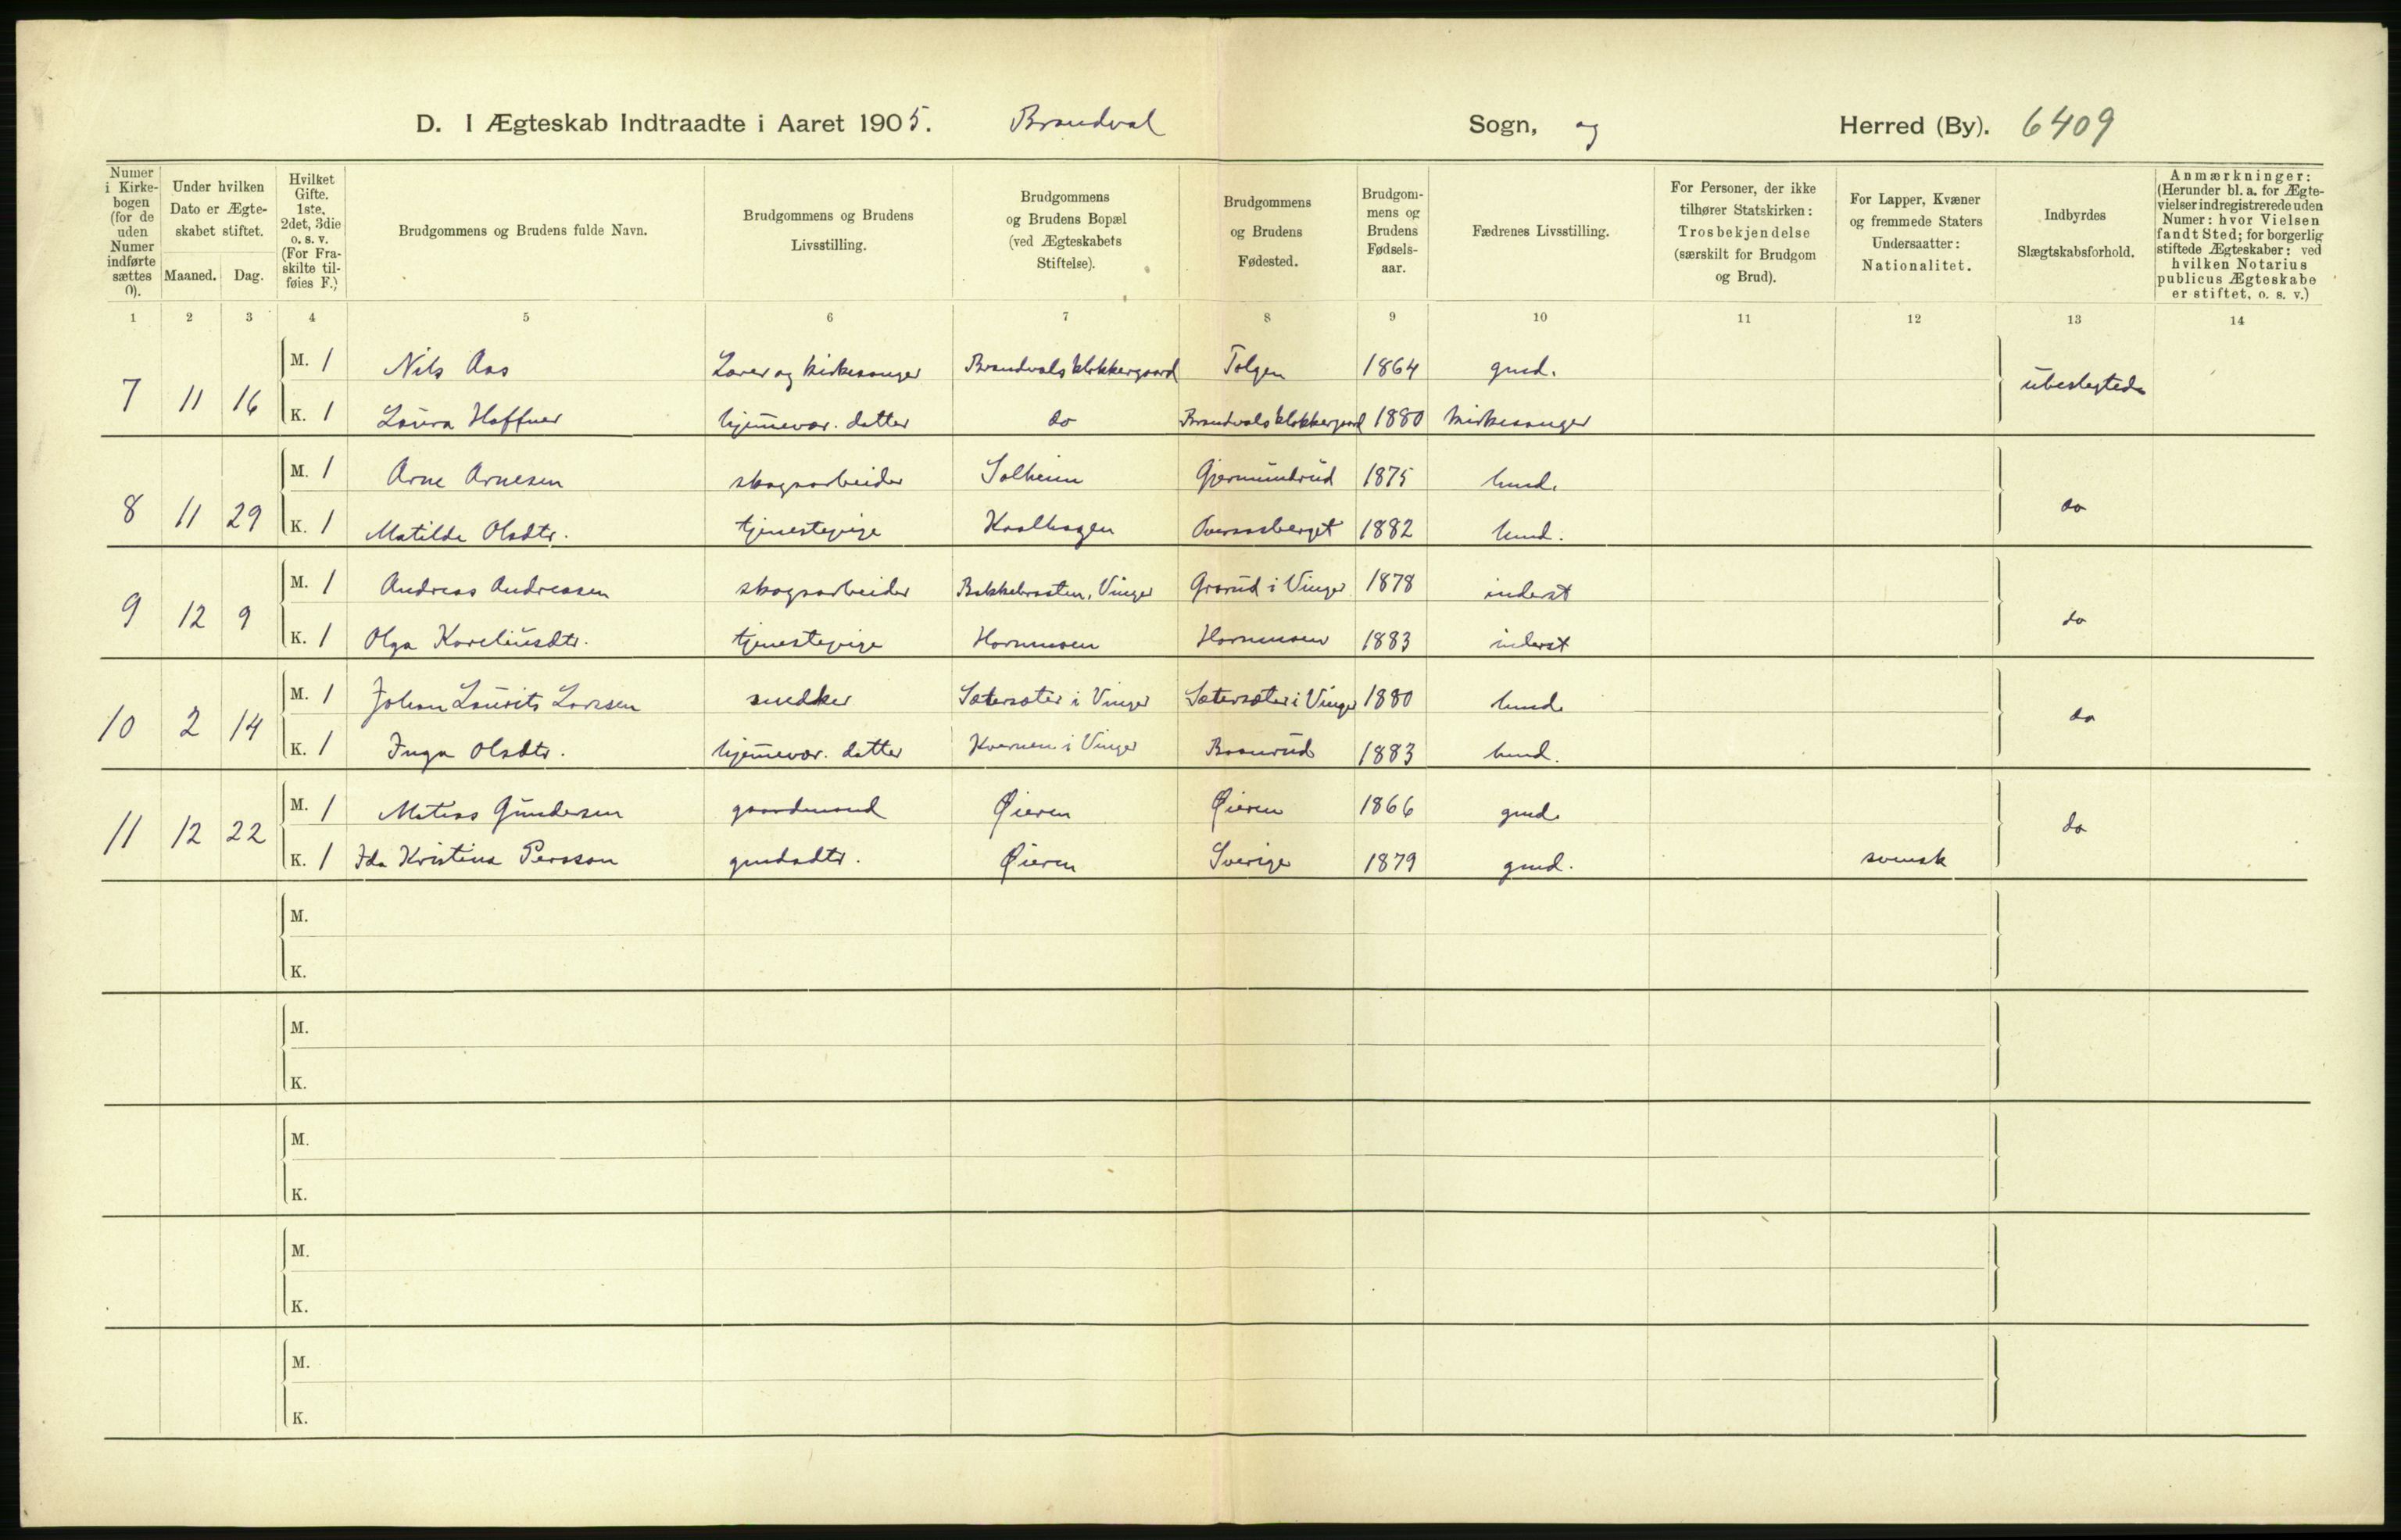 D. I Ægteskab Indtraadte i Aaret 1905. Brandval Sogn, og Herred (By). 6409
Numer i Kirkebogen (for de uden Numer indførte sættes 0).
Under hvilken Dato er Ægteskabet stiftet.
Maaned. Dag.
Hvilket Gifte. 1ste, 2det, 3die o. s. v. (For Fraskilte tilføies F.)
Brudgommens og Brudens fulde Navn.
Brudgommens og Brudens Livsstilling.
Brudgommens og Brudens Bopæl (ved Ægteskabets Stiftelse).
Brudgommens og Brudens Fødested.
Brudgommens og Brudens Fødselsaar.
Fædrenes Livsstilling.
For Personer, der ikke tilhører Statskirken: Trosbekjendelse (særskilt for Brudgom og Brud).
For Lapper, Kvæner og fremmede Staters Undersaatter: Nationalitet.
Indbyrdes Slægtskabsforhold.
Anmærkninger: (Herunder bl. a. for Ægtevielser indregistrerede uden Numer: hvor Vielsen fandt Sted; for borgerlig stiftede Ægteskaber: ved hvilken Notarius publicus Ægteskabe er stiftet, o. s. v.)
1 2 3 4 5 6 7 8 9 10 11 12 13 14
7 11 16 M. 1 Nils Aas Lærer og kirkesanger Brandvals klokkergaard Tolgen 1864 gmd. ubeslegtede
K. 1 Laura Haffner hjemmevær. datter do Brandvals klokkergaard 1880 kirkesanger
8 11 29 M. 1 Arne Arnesen skogsarbeider Solheim Gjermundrud 1875 hmd. do
K. 1 Matilde Olsdtr. tjenestepige Kaalhagen Overaasberget 1882 hmd.
9 12 9 M. 1 Andreas Andreasen skogsarbeider Bakkebraaten, Vinger Grarud i Vinger 1878 inderst do
K. 1 Olga Kareliusdtr. tjenestepige Hornmoen Hornmoen 1883 inderst
10 2 14 M. 1 Johan Laurits Larssen snedker Sætersæter i Vinger Sætersæter i Vinger 1880 hmd. do
K. 1 Inga Olsdtr. hjemmevær. datter Kvernen i Vinger Baanrud 1883 hmd.
11 12 22 M. 1 Matias Gundersen gaardmand Øieren Øieren 1866 gmd. do
K. 1 Ida Kristina Persson gmdsdtr. Øieren Sverige 1879 gmd. svensk
M.
K.
M.
K.
M.
K.
M.
K.
M.
K.